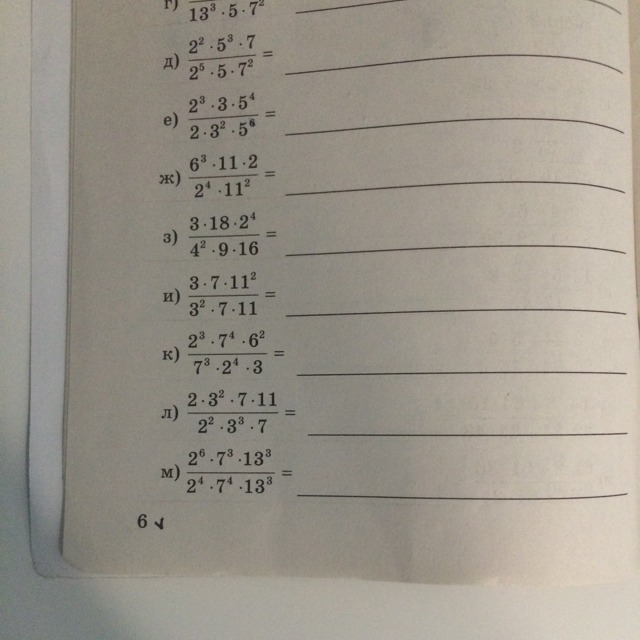 г) 13³ · 5 · 7²
д) 2² · 5³ · 7 / 2⁵ · 5 · 7² =
е) 2³ · 3 · 5⁴ / 2 · 3² · 5⁶ =
ж) 6³ · 11 · 2 / 2⁴ · 11² =
з) 3 · 18 · 2⁴ / 4² · 9 · 16 =
и) 3 · 7 · 11² / 3² · 7 · 11 =
к) 2³ · 7⁴ · 6² / 7³ · 2⁴ · 3 =
л) 2 · 3² · 7 · 11 / 2² · 3³ · 7 =
м) 2⁶ · 7³ · 13³ / 2⁴ · 7⁴ · 13³ =
6